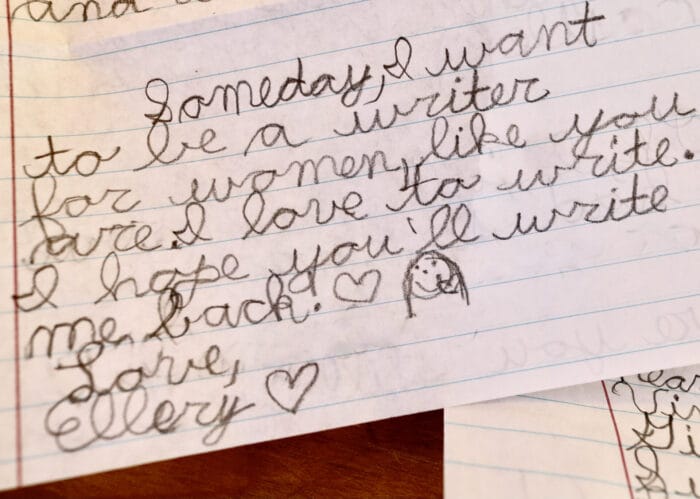 and
Someday, I want
to be a writer
for women, like you
are. I love to write.
I hope you'll write
me back! ♡
Love,
Ellery ♡